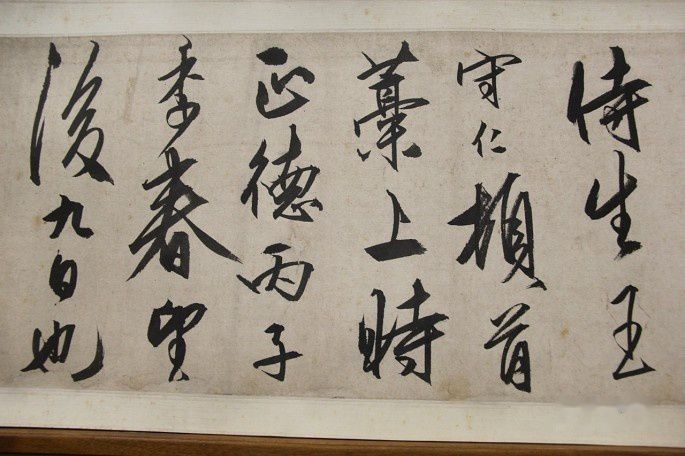 侍生王
守仁頓首
藁上時
正德丙子
季春望
後九日也